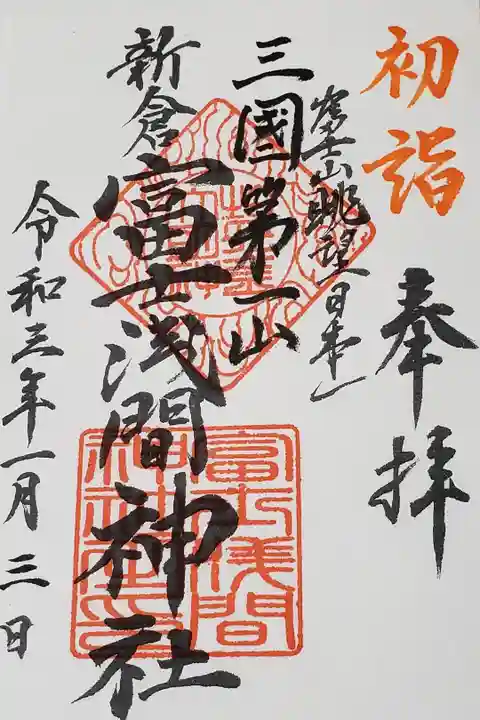 初詣
奉拝
富士山眺望日本一
三國第一山
新倉
富士浅間神社
富士浅間神社印
令和三年一月三日